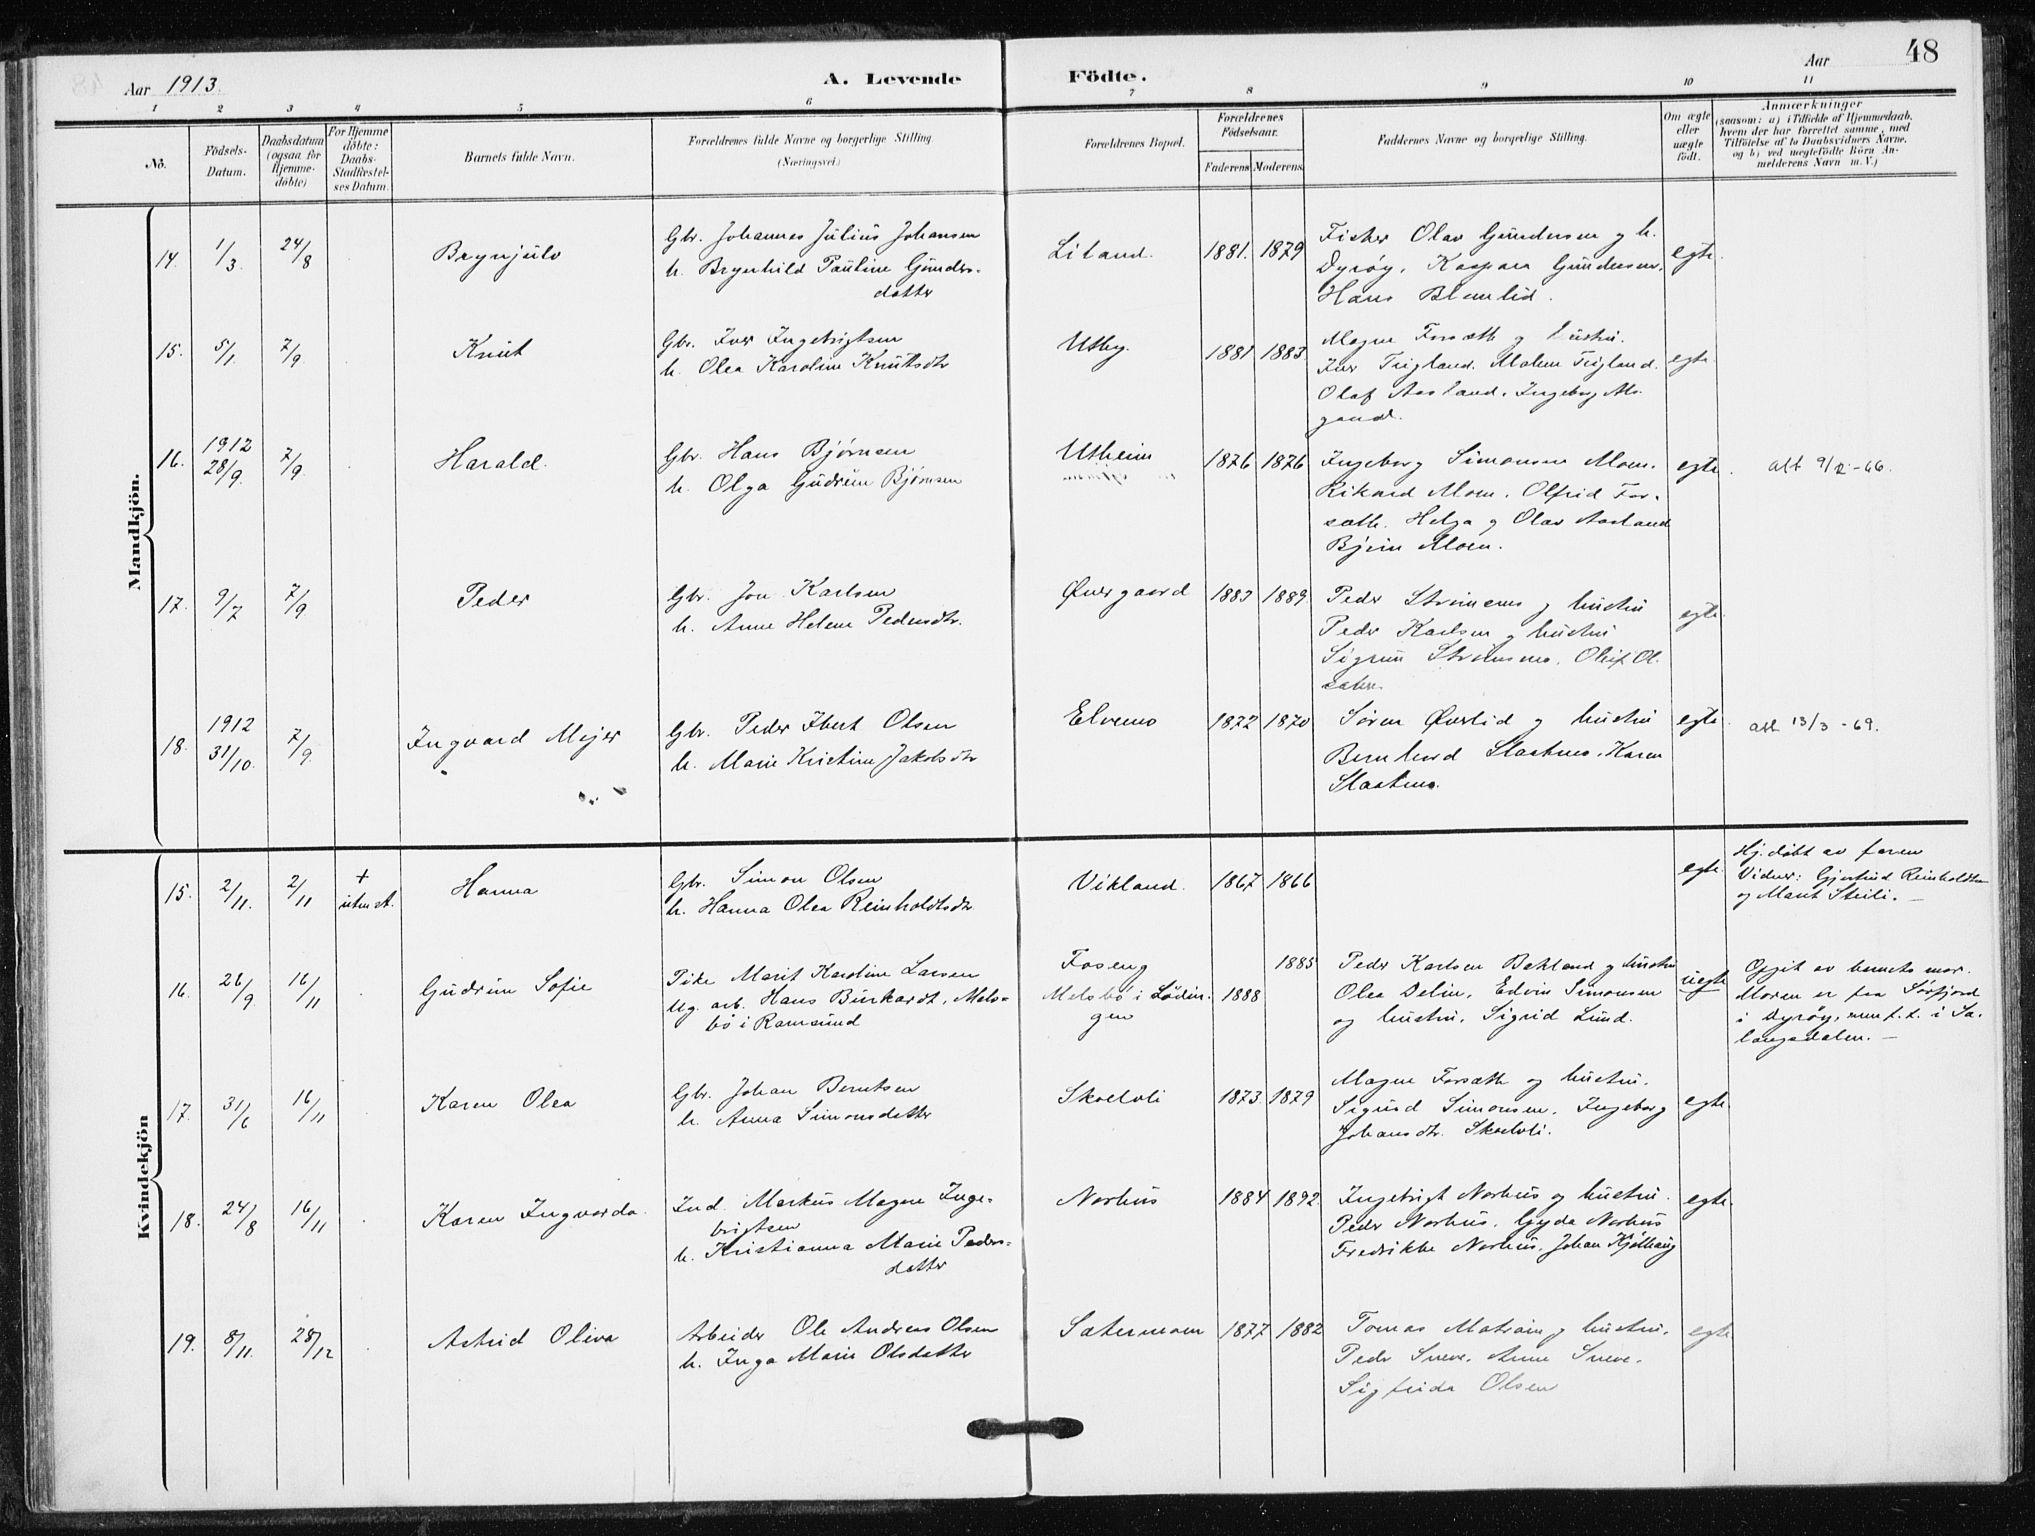 48
Aar 1913.
A. Levende Födte.
Aar
1 2 3 4 5 6 7 8 9 10 11
Nô.
Födsels-
Datum.
Daabsdatum
(ogsaa for
Hjemme-
döbte)
For Hjemme
döbte:
Daabs-
Stadfæstel-
ses Datum.
Barnets fulde Navn.
Forældrenes fulde Navne og borgerlige Stilling
(Næringsvei.)
Forældrenes Bopæl.
Forældrenes
Födselsaar.
Faderens Moderens
Faddernes Navne og borgerlige Stilling.
Om ægte
eller
uægte
födt.
Anmærkninger
(saasom: a) i Tilfælde af Hjemmedaab,
hvem der har forrettet samme, med
Tilföielse af to Daabsvidners Navne,
og b) ved uægtefödte Börn An-
melderens Navn m. V.)
Mandkjön.
14. 1/3 24/8 Brynjulv
Gbr. Johannes Julius Johansen
h. Brynhild Pauline Gunders-
datter
Liland. 1881. 1879
Fisker Olav Gundersen og h.
Dyrøy, Kaspara Gundersen,
Hans Blomlid.
egte.
15. 5/1. 7/9. Knut
Gbr. Iver Ingebrigtsen
h. Olea Karoline Knutsdtr
Utby. 1881 1883.
Magne Forsæth og hustru.
Iver Trigland. Malene Trigland.
Olaf Aasland. Ingeborg Mo.
egte.
16. 1912
28/9. 7/9. Harald.
Gbr. Hans Bjørnsen
h. Olga Gudrun Bjørnsen
Utheim 1876 1876
Ingeborg Simonsen Moen.
Rikard Moen. Olfrid For-
sæth. Helga og Olav Aasland
Bjørn Moen.
egte. att 9/2-66.
17. 9/7 7/9 Peder
Gbr. Jon Karlsen
h. Anne Helene Pedersdtr.
Øvergaard 1883 1889.
Peder Strømsnes og hustru
Peder Karlsen og hustru
Sigrun Strømsnes, Oluf Ol.
egte.
18. 1912
31/10. 7/9. Ingvard Mejer
Gbr. Peder Ibert Olsen
h. Marie Kristine Jakobsdtr
Elvemo 1872 1870
Søren Øverlid og hustru
Bernhard Slaatmo. Karen
Slaatmo.
egte. att 13/3-69.
Kvindekjön
15. 2/11. 2/11 +
uten st. Hanna
Gbr. Simon Olsen
h. Hanna Olea Reinholdtsdtr.
Vikland. 1867 1866
egte.
Hj.døbt av faren
Vidner: Gjertrud Reinholdtsen
og Marit Steili. —
16. 26/9 16/11 Gudrun Sofie
Pike Marit Karoline Larsen
Ug. arb. Hans Burkardt, Mels-
bø i Ramsund
Foseng
Melsbø i Lødin-
gen
1888 1885
Peder Karlsen Bekland og hustru
Olea Delin, Edvin Simonsen
og hustru, Sigrid Lund.
uegte
Opgit av barnets mor.
Moren er fra Sørfjord
i Dyrøy, men f.t. i Sa-
langsdalen. —
17. 31/6 16/11 Karen Olea
Gbr. Johan Berntsen
h. Anna Simonsdatter
Skoelvli 1873. 1879
Magne Forsæth og hustru.
Sigurd Simonsen, Ingeborg
Johansdtr. Skoelvli.
egte.
18. 24/8 16/11 Karen Ingvarda.
Ind. Markus Magne Inge-
brigtsen
h. Kristianna Marie Peders-
datter
Norhus 1884 1892.
Ingebrigt Norhus og hustru.
Peder Norhus, Gyda Norhus
Fredrikke Norhus, Johan Kjølhaug
egte.
19. 8/11. 28/12 Astrid Oliva
Arbeider Ole Andreas Olsen
h. Inga Marie Olsdatter
Sætermoen 1877 1882
Tomas Moträ og hustru.
Peder Sneve. Anne Sneve.
Sigfrida Olsen
egte